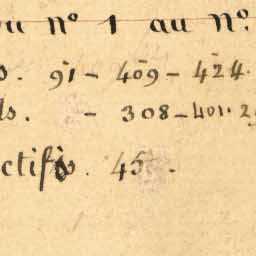 du nº 1 au nº.
s. 91 - 409 - 424.
ds. - 308 - 401. 2
ctifs. 45.